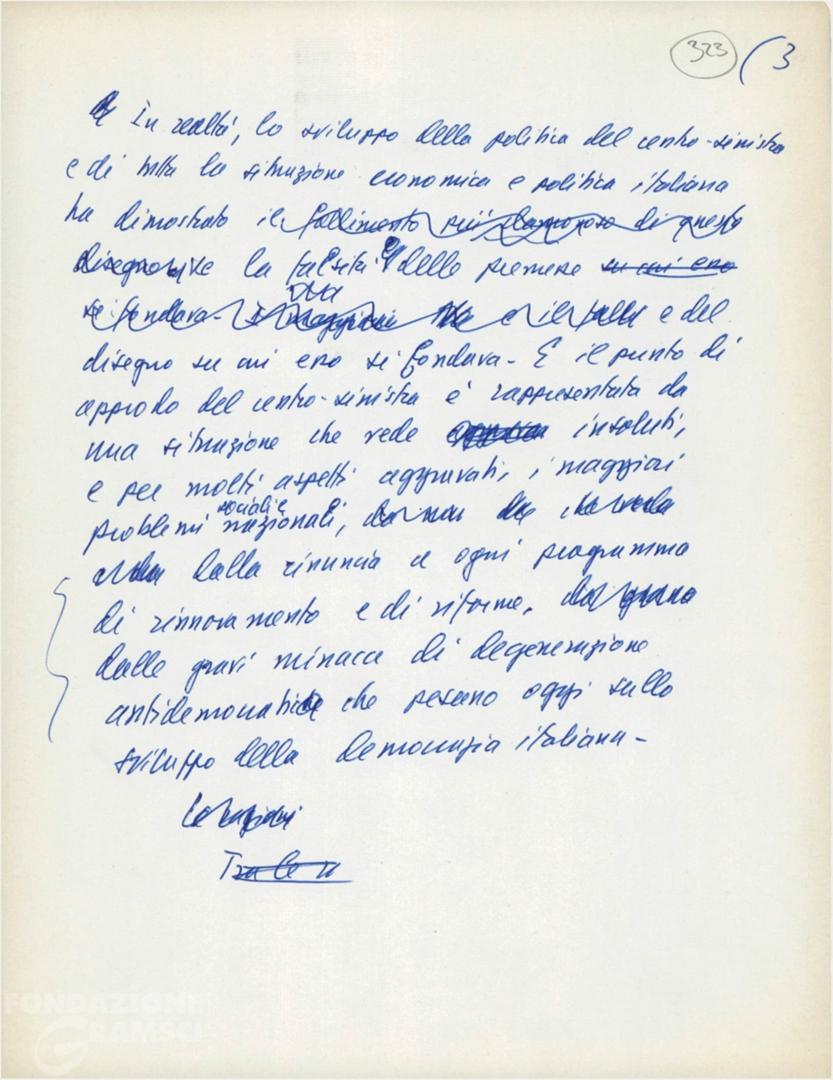 323 (3
In realtà, lo sviluppo della politica del centro-sinistra
e di tutta la situazione economica e politica italiana
ha dimostrato il fallimento più clamoroso di questo
disegno la falsità delle premesse su cui esso
si fondava. e il e del
disegno su cui esso si fondava - E il punto di
approdo del centro-sinistra è rappresentato da
una situazione che vede insoluti,
e per molti aspetti aggravati, i maggiori
problemi sociali e nazionali,
dalla rinuncia a ogni programma
di rinnovamento e di riforme,
dalle gravi minacce di degenerazione
antidemocratica che pesano oggi sullo
sviluppo della democrazia italiana -
FONDAZIONE
GRAMSCI